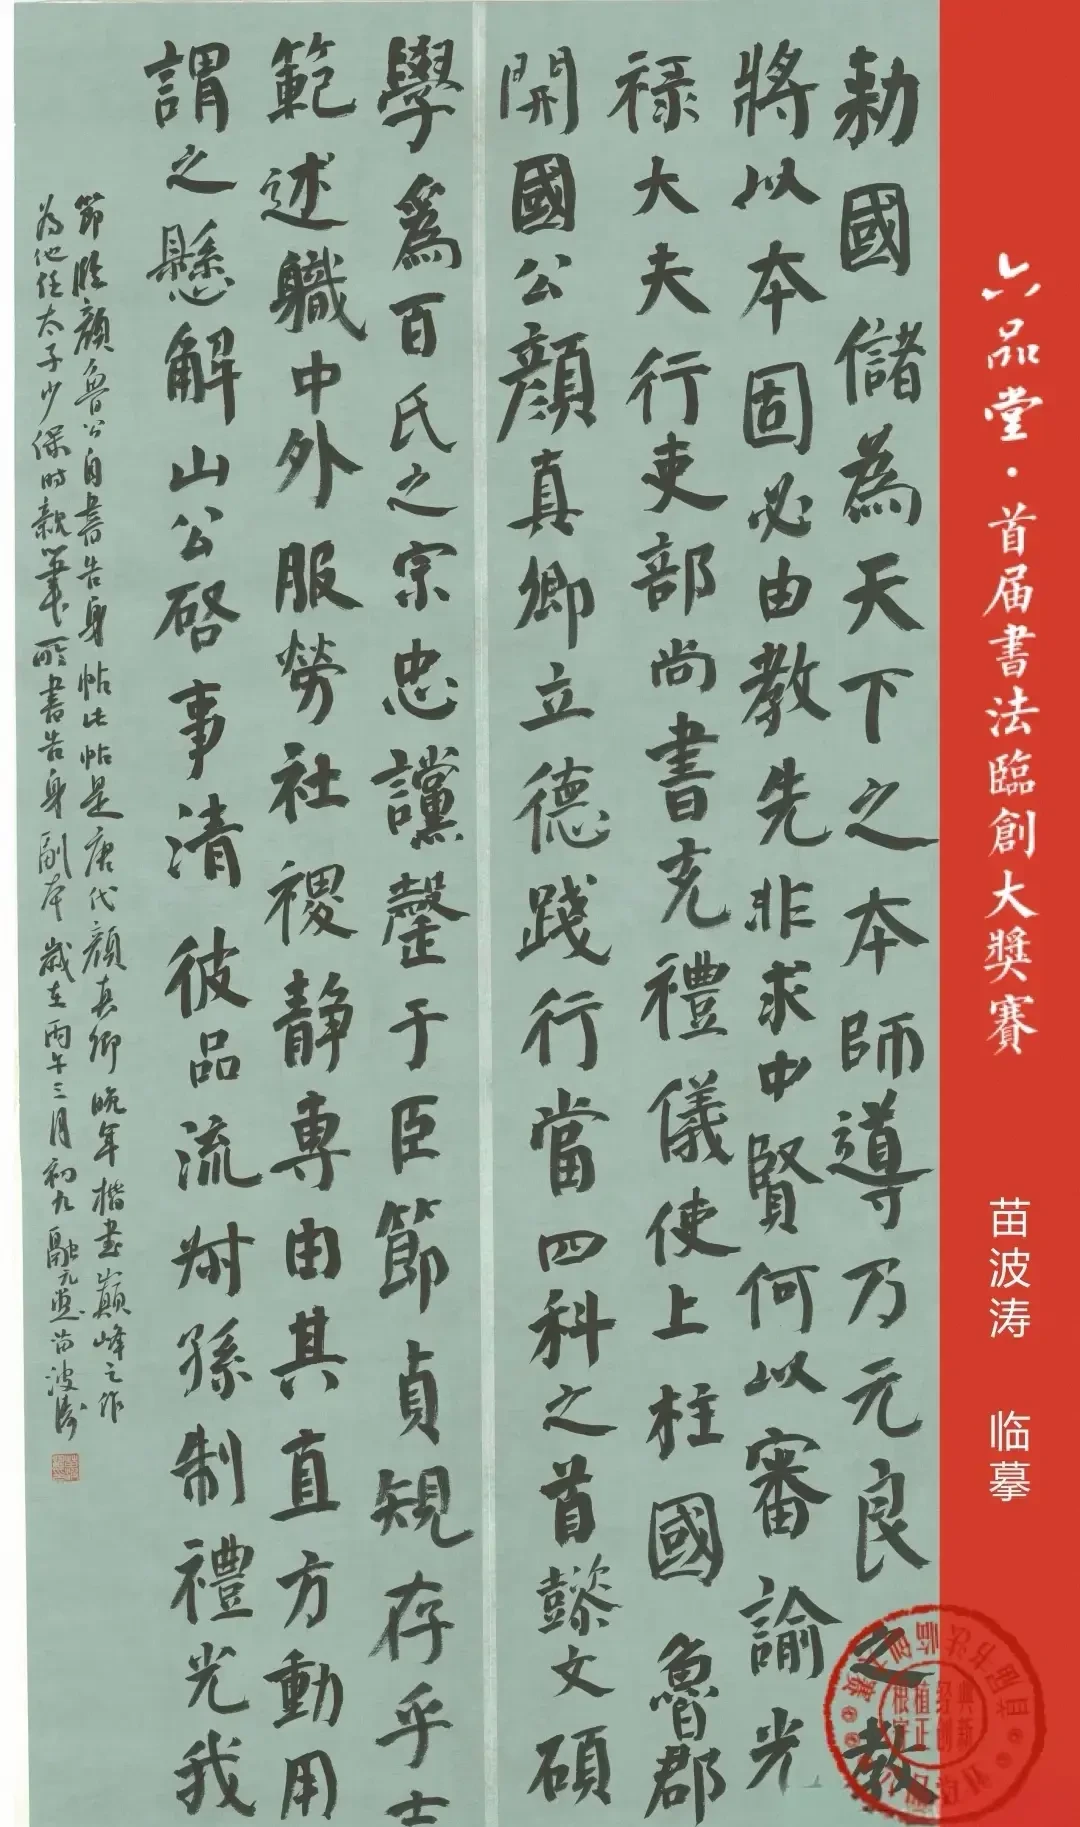 六品堂·首届書法臨創大獎賽
苗波涛 临摹
勅國儲為天下之本師導乃元良之教
將以本固必由教先非求中賢何以審諭光
禄大夫行吏部尚書充禮儀使上柱國魯郡
開國公顏真卿立德踐行當四科之首懿文碩
學爲百氏之宗忠讜罄于臣節貞規存乎士
範述職中外服勞社稷静專由其直方動用
謂之懸解山公啓事清彼品流叔孫制禮光我
節臨顏魯公自書告身帖此帖是唐代顏真卿晚年楷書巔峰之作
為他任太子少保時親筆所書告身副本 歲在丙午三月初九 苗波涛